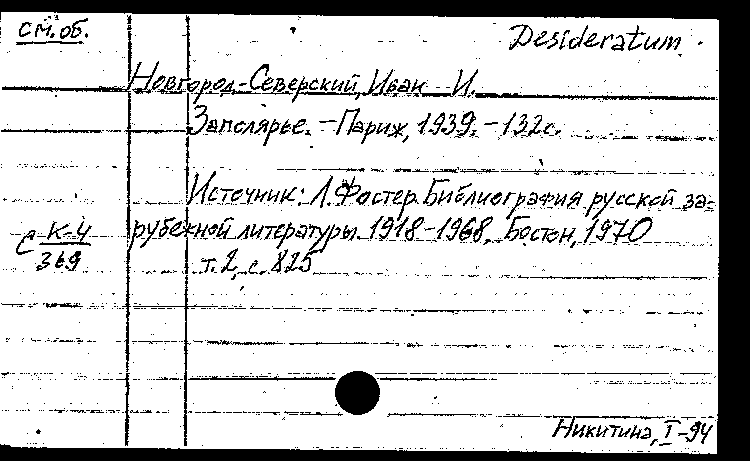 см. об.
Desideratum.
Новгород-Северский, Иван И.
Заполярье. – Париж, 1939. – 132с.
Источник: Л. Фостер. Библиография русской за-
рубежной литературы. 1918-1968. Бостон, 1970
т. 2, с. 825
С К-4
369
Никитина, I-94